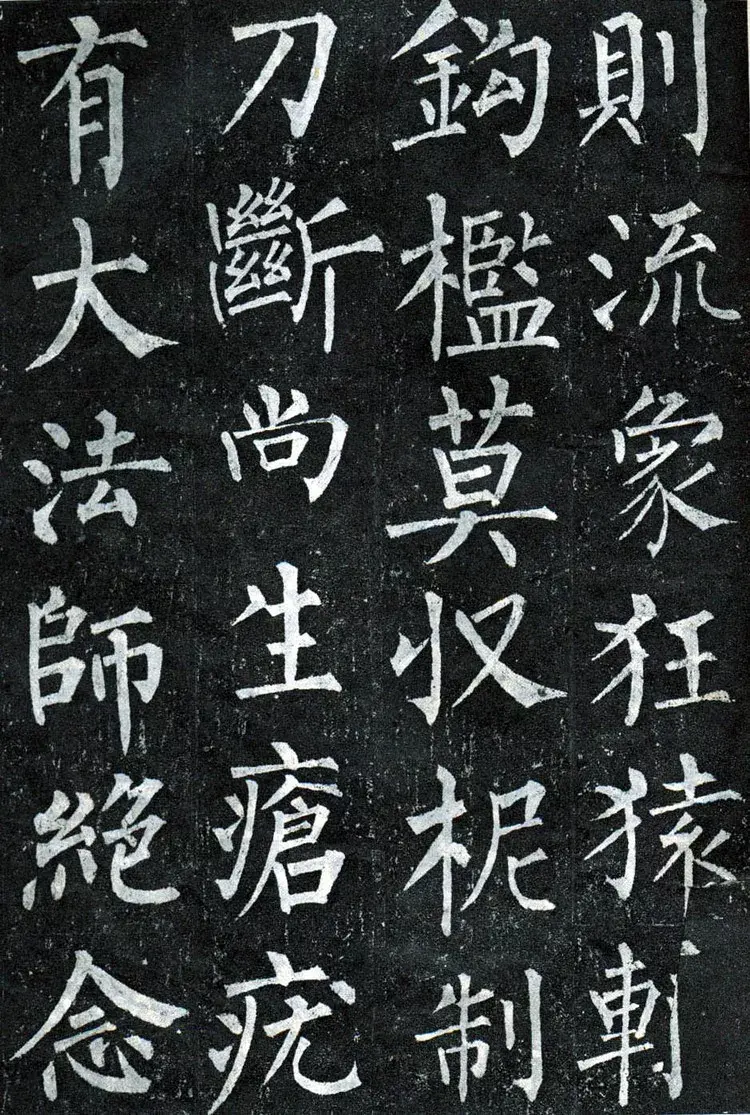 則流象狂猿
鈎檻莫収柅制
刀斷尚生瘡疣
有大法師絕念